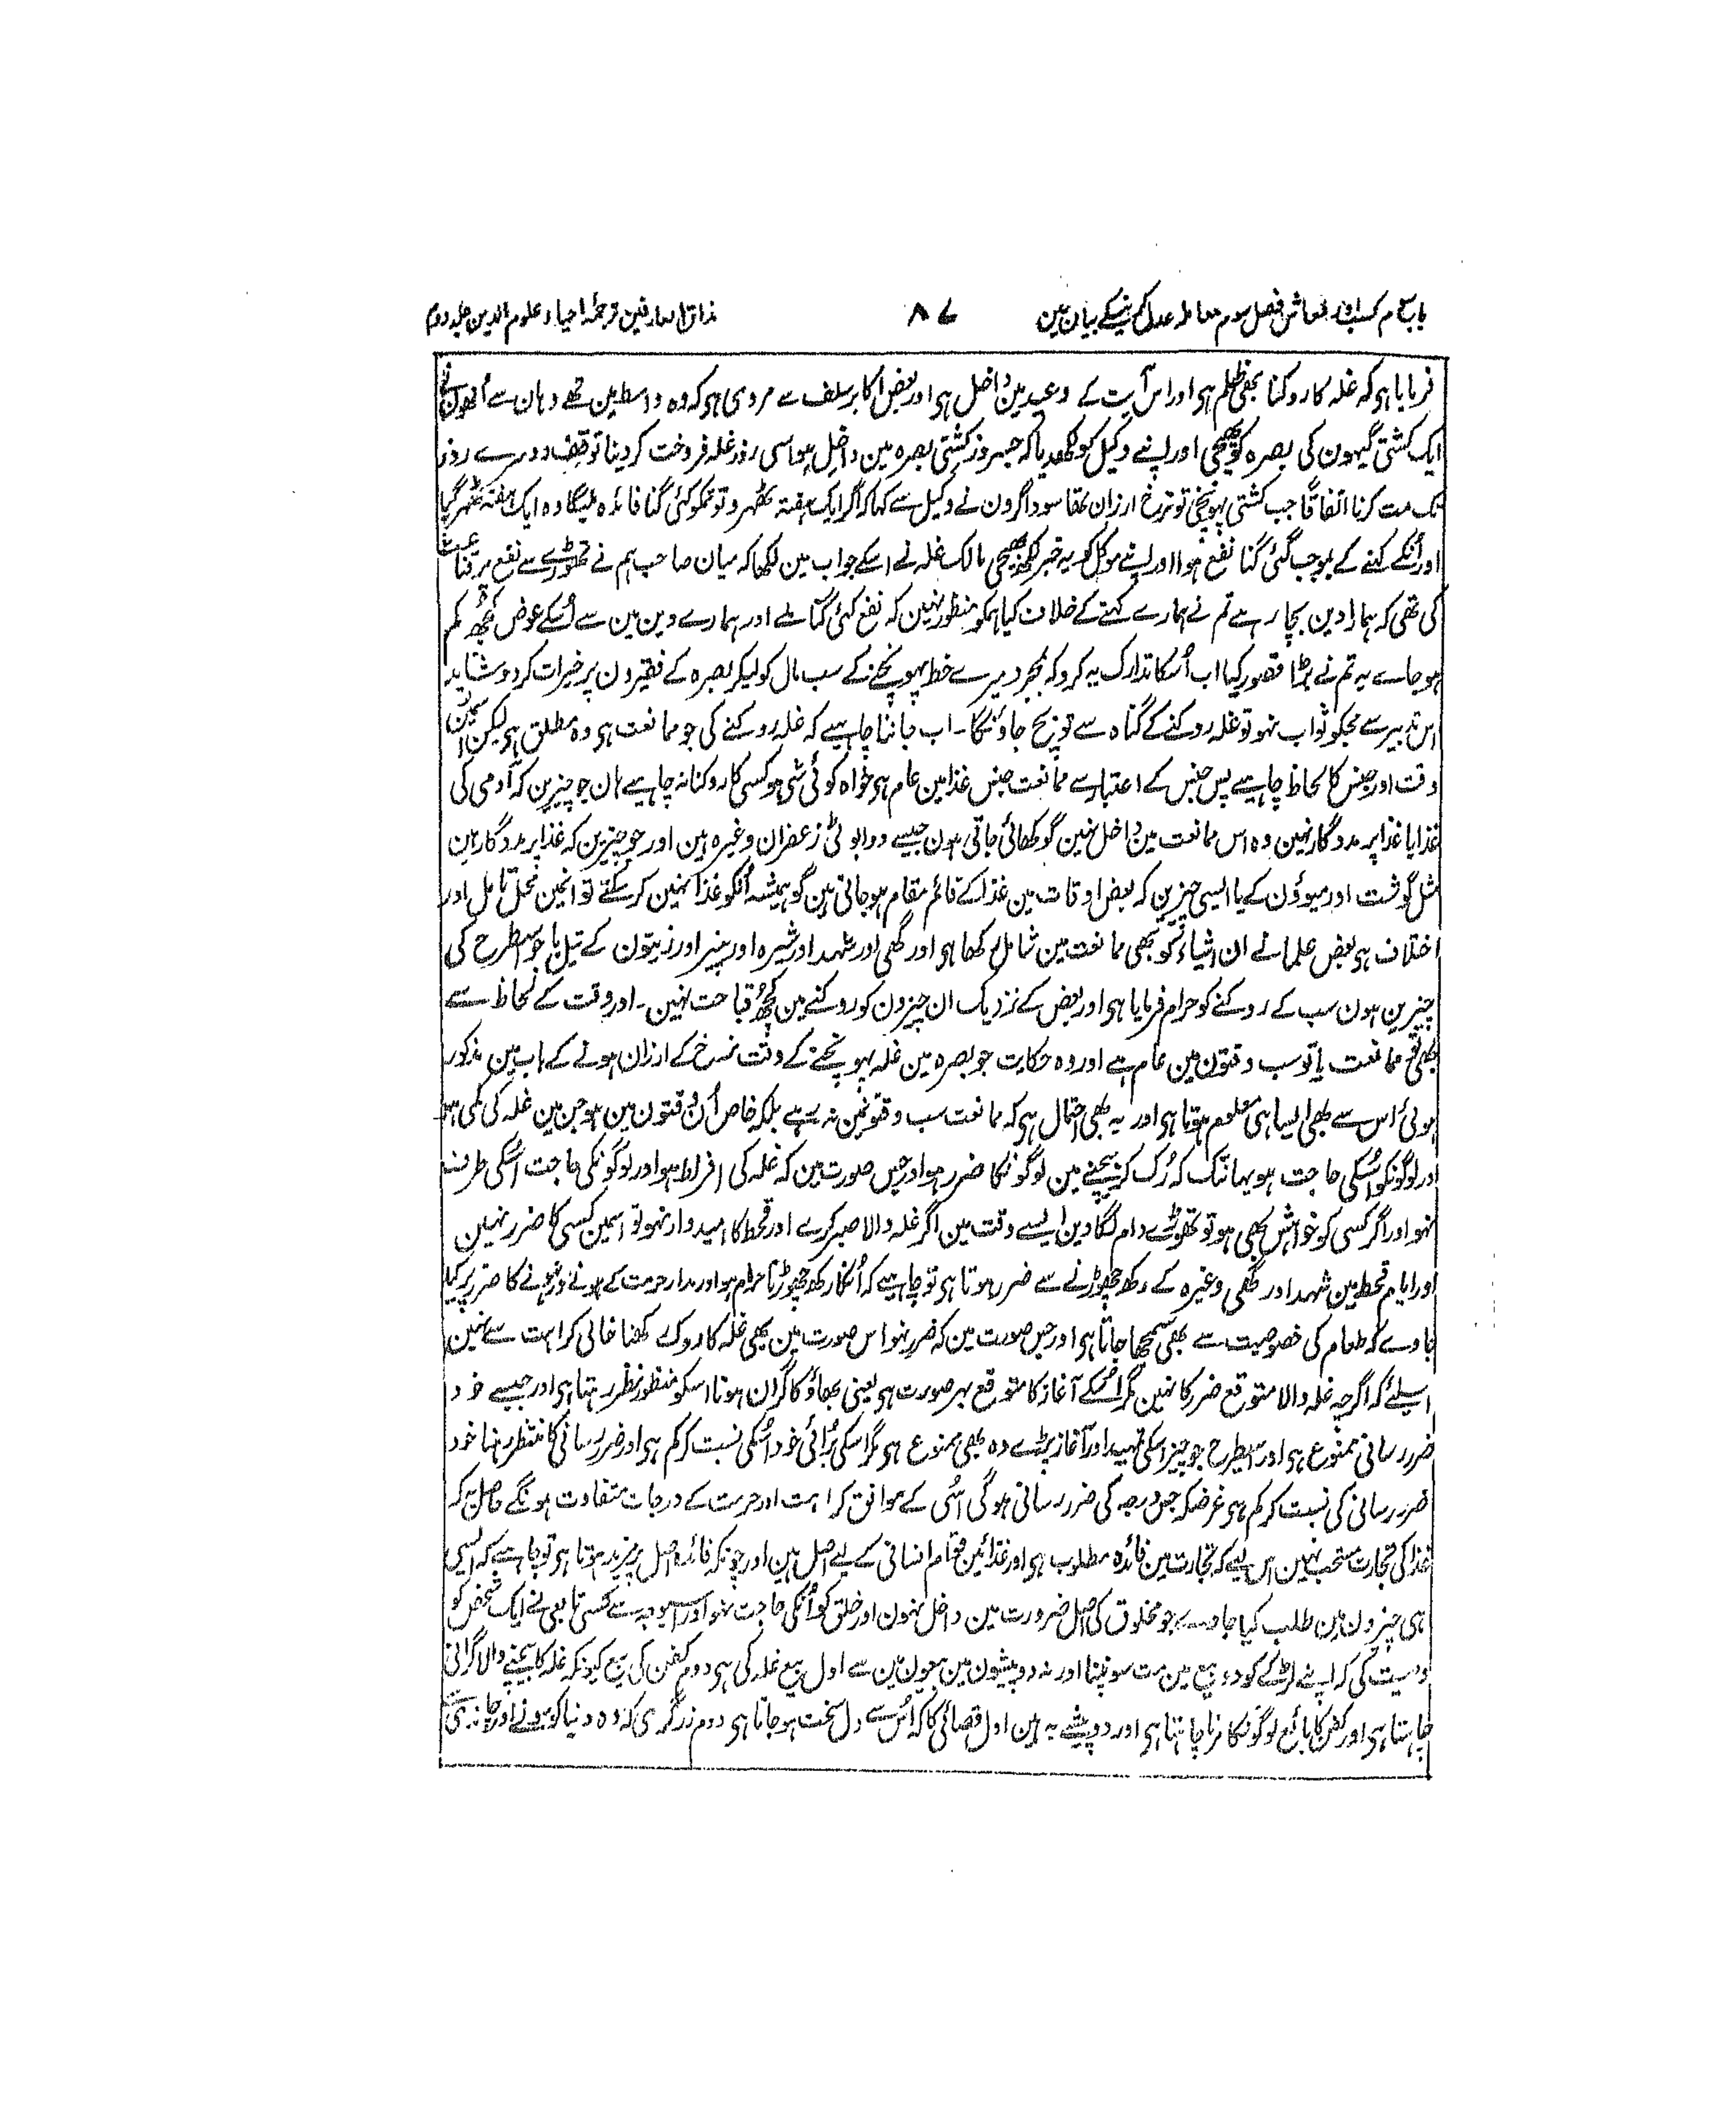 باب سوم کسب اور معاش فصل سوم معاملہ عدل کرنیکے بیان مین ۸۷ مذاق العارفین ترجمۂ احیاء علوم الدین جلد دوم
فرمایا ہو کہ غلہ کا روکنا بھی ظلم ہی اور اس آیت کے وعید مین داخل ہی اور بعض اکابر سلف سے مروی ہو کہ وہ واسط مین تھے وہان سے اُنھون نے
ایک کشتی گیہون کی بصرہ کو بھیجی اور اپنے وکیل کو لکھدیا کہ جسروز کشتی بصرہ مین داخل ہو اسی روز غلہ فروخت کر دینا توقف دوسرے روز
تک مت کرنا اتفاقاً جب کشتی پہونچی تو نرخ ارزان تھا سوداگرون نے وکیل سے کہا کہ اگر ایک ہفتہ ٹھہرو تو تمکو کئی گنا فائدہ ملیگا وہ ایک ہفتہ ٹھہر گیا
اور اُنکے کہنے کے بموجب کئی گنا نفع ہوا اور اپنے موکل کو یہ خبر لکھ بھیجی مالک غلہ نے اسکے جواب مین لکھا کہ میان صاحب ہم نے تھوڑے سے نفع پر قناعت
کی تھی کہ ہمارا دین بچا رہے تم نے ہمارے کہنے کے خلاف کیا ہمکو منظور نہین کہ نفع کئی گنا ملے اور ہمارے دین مین سے اُسکے عوض کچھ کم
ہو جاے یہ تم نے بڑا قصور کیا اب اُسکا تدارک یہ کرو کہ بمجرد میرے خط پہونچنے کے سب مال کو لیکر بصرہ کے فقیرون پر خیرات کر دو شاید
اس تدبیر سے مجکو ثواب نہو تو غلہ روکنے کے گناہ سے تو بچ جاؤنگا۔ اب جاننا چاہیے کہ غلہ روکنے کی جو ممانعت ہی وہ مطلق ہی لیکن اسمین
وقت اور جنس کا لحاظ چاہیے پس جنس کے اعتبار سے ممانعت جنس غذا مین عام ہی خواہ کوئی شی ہو کسی کا روکنا نہ چاہیے ہان جو چیزین کہ آدمی کی
غذا یا غذا پر مددگار نہین وہ اس ممانعت مین داخل نہین گو کھائی جاتی ہون جیسے دوا بوٹی زعفران وغیرہ ہین اور جو چیزین کہ غذا پر مددگار ہین
مثل گوشت اور میوؤن کے یا ایسی چیزین کہ بعض اوقات مین غذا کے قائم مقام ہو جاتی ہین گو ہمیشہ اُنکو غذا نہین کر سکتے تو انمین محل تامل اور
اختلاف ہی بعض علما نے ان اشیاء کو بھی ممانعت مین شامل رکھا ہی اور گھی اور شہد اور شیرہ اور پنیر اور زیتون کے تیل یا جو اسطرح کی
چیزین ہون سب کے روکنے کو حرام فرمایا ہی اور بعض کے نزدیک ان چیزون کو روکنے مین کچھ قباحت نہین۔ اور وقت کے لحاظ سے
بھی ممانعت یا تو سب وقتون مین عام ہے اور وہ حکایت جو بصرہ مین غلہ پہونچنے کے وقت نرخ کے ارزان ہونے کے باب مین مذکور
ہوئی اُس سے بھی ایسا ہی معلوم ہوتا ہی اور یہ بھی احتمال ہی کہ ممانعت سب وقتونمین نہ رہے بلکہ خاص اُن وقتون مین ہو جن مین غلہ کی کمی ہو
اور لوگونکو اُسکی حاجت ہو یہانتک کہ رُک کر بیچنے مین لوگونکا ضرر ہو اور جس صورت مین کہ غلہ کی افراط ہو اور لوگونکی حاجت اُسکی طرف
نہو اور اگر کسی کو خواہش بھی ہو تو تھوڑے دام لگا دین ایسے وقت مین اگر غلہ والا صبر کرے اور قحط کا امیدوار نہو تو اسمین کسی کا ضرر نہین
اور ایام قحط مین شہد اور گھی وغیرہ کے رکھ چھوڑنے سے ضرر ہوتا ہی تو چاہیے کہ اُنکا رکھ چھوڑنا حرام ہو اور مدار حرمت کے ہونے و نہونے کا ضرر پر کیا
جاوے کہ طعام کی خصوصیت سے بھی سمجھا جاتا ہی اور جس صورت مین کہ ضرر نہو اس صورت مین بھی غلہ کا روک رکھنا خالی کراہت سے نہین
اسلئے کہ اگرچہ غلہ والا متوقع ضرر کا نہین مگر اُسکے آغاز کا متوقع بہر صورت ہی یعنی بھاؤ کا گران ہونا اسکو منظور نظر رہتا ہی اور جیسے خود
ضرر رسانی ممنوع ہی اور اسیطرح جو چیز اسکی تمہید اور آغاز پڑے وہ بھی ممنوع ہی مگر اسکی بُرائی خود اُسکی نسبت کر کم ہی اور ضرر رسانی کا منتظر رہنا خود
ضرر رسانی کی نسبت کر کم ہی غرضکہ جس درجہ کی ضرر رسانی ہوگی اُسی کے موافق کراہت اور حرمت کے درجات متفاوت ہونگے حاصل یہ کہ
غذا کی تجارت مستحب نہین اس لیے کہ تجارت مین فائدہ مطلوب ہی اور غذائین قوام انسانی کے لیے اصل ہین اور چونکہ فائدہ اصل پر مزید ہوتا ہی تو چاہیے کہ ایسی
ہی چیزون مین طلب کیا جاوے جو مخلوق کی اصل ضرورت مین داخل نہون اور خلق کو اُنکی حاجت نہو اور اسیوجہ سے کسی تابعی نے ایک شخص کو
وصیت کی کہ اپنے لڑکے کو دو بیع مین مت سونپنا اور نہ دو پیشون مین بیعون مین سے اول بیع غلہ کی ہی دوم کفن کی بیع کیونکہ غلہ کا بیچنے والا گرانی
چاہتا ہی اور کفن کا بائع لوگونکا مرنا چاہتا ہی اور دو پیشے یہ ہین اول قصائی کا کہ اُس سے دل سخت ہو جاتا ہی دوم زرگری کہ وہ دنیا کو سونے اور چاندی